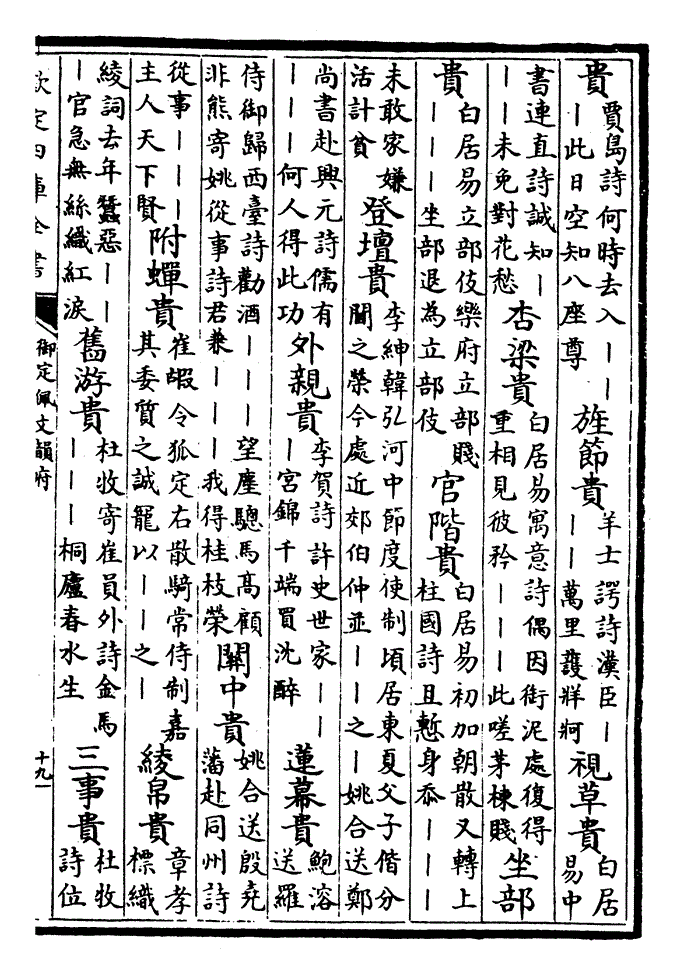 貴賈島詩何時去入丨丨丨此日空知八座尊旌節貴羊士諤詩漢臣丨丨丨萬里護牂牁視草貴白居易中
書連直詩誠知丨丨丨未免對花愁杏梁貴白居易寓意詩偶因銜泥處復得重相見彼矜丨丨丨此嗟茅棟賤坐部
貴白居易立部伎樂府立部賤丨丨丨坐部退為立部伎官階貴白居易初加朝散又轉上柱國詩且慙身忝丨丨丨
未敢家嫌活計貧登壇貴李紳韓弘河中節度使制頃居東夏父子偕分閫之榮今處近郊伯仲並丨丨之丨姚合送鄭
尚書赴興元詩儒有丨丨丨何人得此功外親貴李賀詩許史世家丨丨丨宮錦千端買沈醉蓮幕貴鮑溶送羅
侍御歸西臺詩勸酒丨丨丨望塵驄馬高顧非熊寄姚從事詩君兼丨丨丨我得桂枝榮關中貴姚合送殷堯藩赴同州詩
從事丨丨丨主人天下賢附蟬貴崔嘏令狐定右散騎常侍制嘉其委質之誠寵以丨丨之丨綾帛貴章孝標織
綾詞去年蠶惡丨丨丨官急無絲織紅淚舊游貴杜牧寄崔員外詩金馬丨丨丨桐廬春水生三事貴杜牧詩位
欽定四庫全書
御定佩文韻府
十九